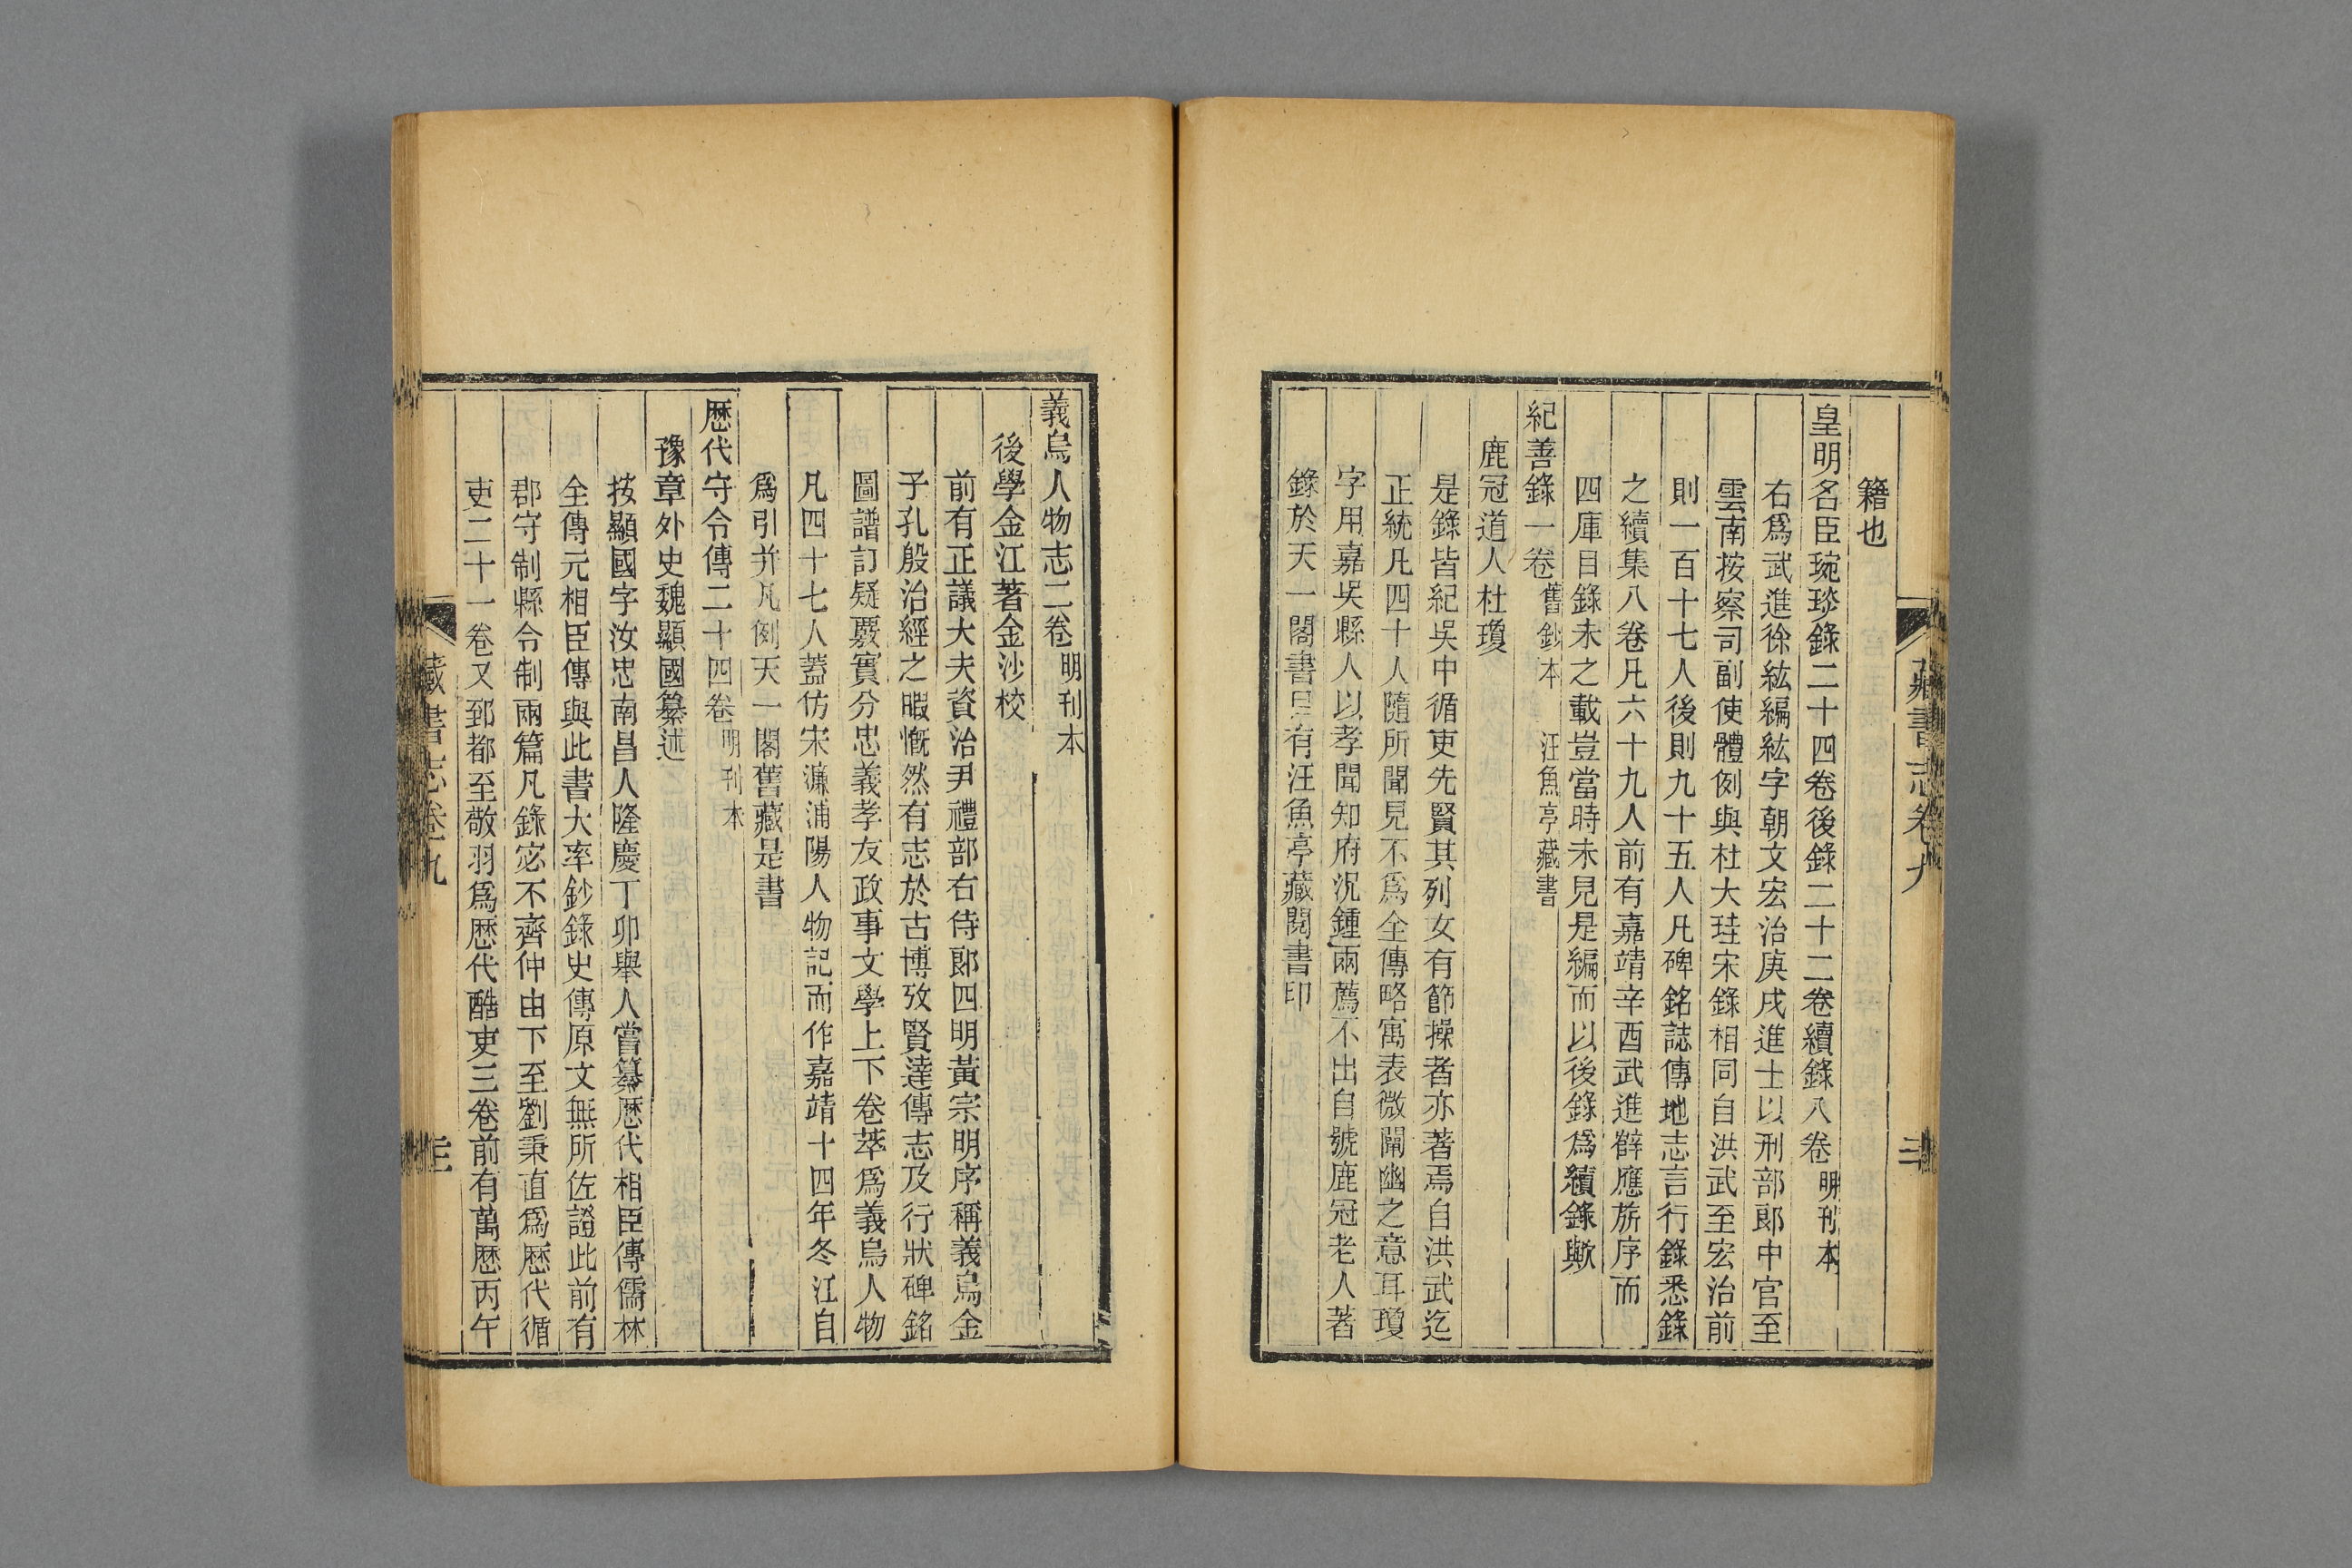 藏書志卷九
籍也
皇明名臣琬琰錄二十四卷後錄二十二卷續錄八卷明刊本
右爲武進徐紘編紘字朝文宏治庚戌進士以刑部郎中官至
雲南按察司副使體例與杜大珪宋錄相同自洪武至宏治前
則一百十七人後則九十五人凡碑銘誌傳地志言行錄悉錄
之續集八卷凡六十九人前有嘉靖辛酉武進薛應旂序而
四庫目錄未之載豈當時未見是編而以後錄爲續錄歟
紀善錄一卷舊鈔本 汪魚亭藏書
鹿冠道人杜瓊
是錄皆紀吳中循吏先賢其列女有節操者亦著焉自洪武迄
正統凡四十人隨所聞見不爲全傳略寓表微闡幽之意耳瓊
字用嘉吳縣人以孝聞知府況鍾兩薦不出自號鹿冠老人著
錄於天一閣書目有汪魚亭藏閱書印
義烏人物志二卷明刊本
後學金江著金沙校
前有正議大夫資治尹禮部右侍郎四明黃宗明序稱義烏金
子孔殷治經之暇慨然有志於古博攷賢達傳志及行狀碑銘
圖譜訂疑覈實分忠義孝友政事文學上下卷萃爲義烏人物
凡四十七人蓋仿宋濂浦陽人物記而作嘉靖十四年冬江自
爲引并凡例天一閣舊藏是書
歷代守令傳二十四卷明刊本
豫章外史魏顯國纂述
按顯國字汝忠南昌人隆慶丁卯舉人嘗纂歷代相臣傳儒林
全傳元相臣傳與此書大率鈔錄史傳原文無所佐證此前有
郡守制縣令制兩篇凡錄宓不齊仲由下至劉秉直爲歷代循
吏二十一卷又郅都至敬羽爲歷代酷吏三卷前有萬歷丙午
藏書志卷九